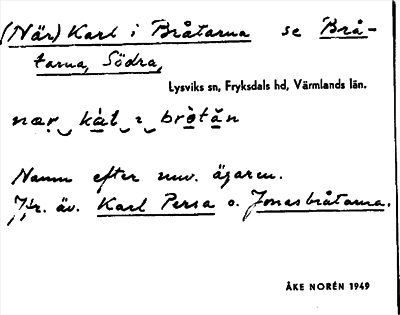 (När) Karl i Bråtarna se Brå-
tarna, Södra,
Lysviks sn, Fryksdals hd, Värmlands län.
næṛ‿kàl‿ɪ‿brètăn
Namn efter nuv. ägaren.
Jfr. äv. Karl Persa o. Jonasbråtarna.
ÅKE NORÉN 1949